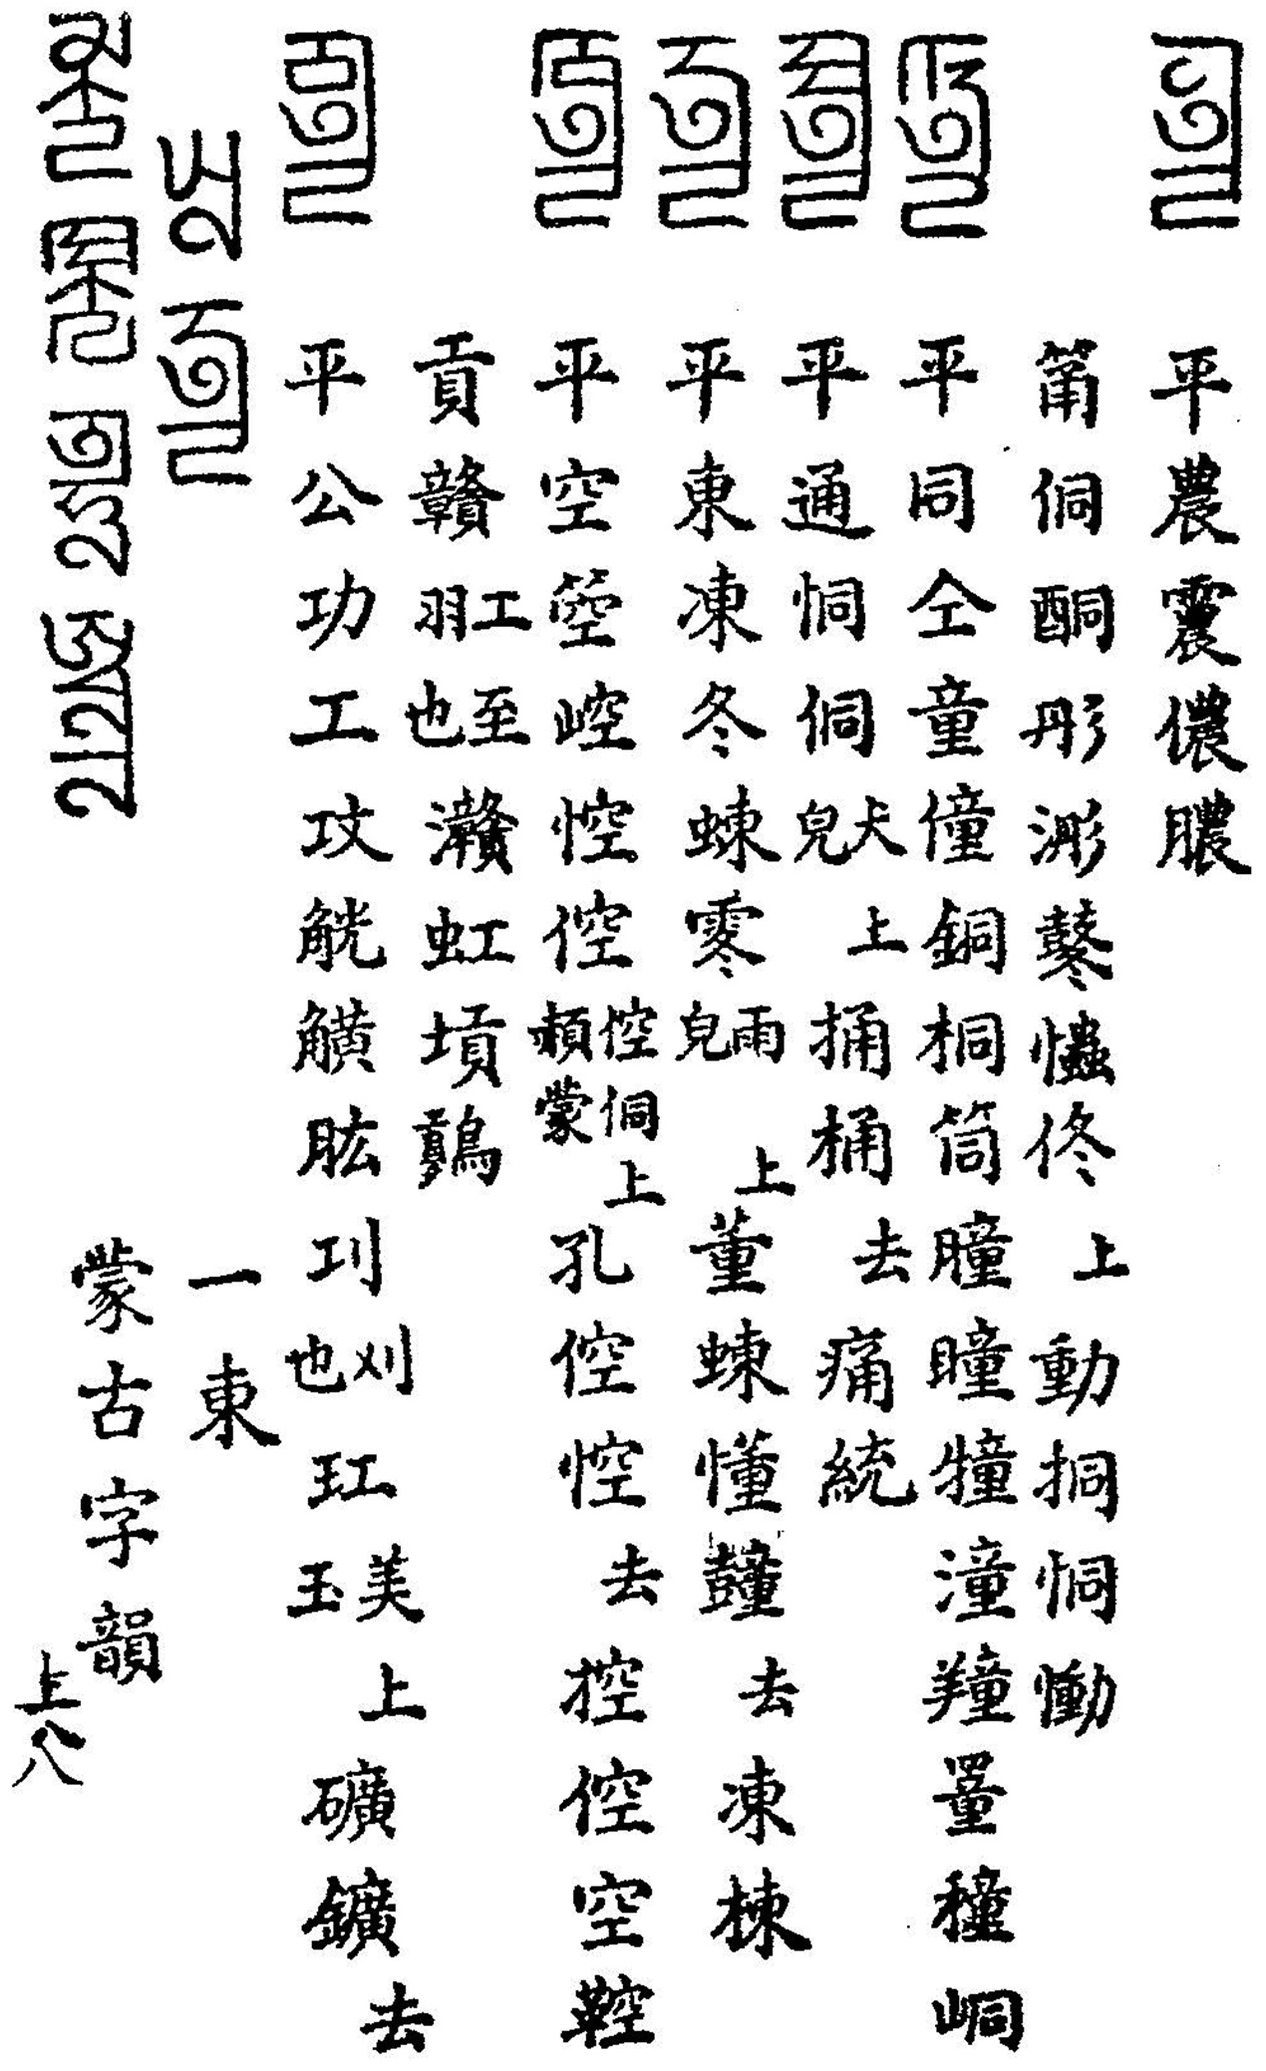 蒙古字韻 上八
一東
ꡂꡟꡃ 平公功工攻觥觵肱刋刈也玒美玉上礦鑛去
貢贛羾至也灨虹墳
ꡁꡟꡃ 平空箜崆悾倥悾侗顓蒙上孔倥悾去控倥空鞚
ꡊꡟꡃ 平東凍冬蝀雨皃上董蝀懂去凍棟
ꡉꡟꡃ 平通恫侗大皃上捅桶去痛統
ꡈꡟꡃ 平同仝童僮銅桐筒朣瞳犝潼罿穜峒
筩侗酮彤浵鼕爞佟上動挏恫慟
ꡋꡟꡃ 平農震儂膿